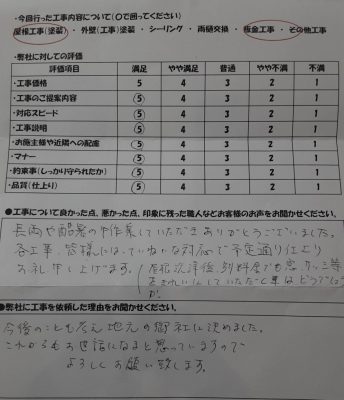 ・今回行った工事内容について(〇で囲ってください)
屋根工事(塗装) ・ 外壁(工事)塗装 ・ シーリング ・ 雨樋交換 ・ 板金工事 ・ その他工事
・弊社に対しての評価
評価項目 満足 やや満足 普通 やや不満 不満
・工事価格 5 4 3 2 1
・工事のご提案内容 5 4 3 2 1
・対応スピード 5 4 3 2 1
・工事説明 5 4 3 2 1
・お施主様や近隣への配慮 5 4 3 2 1
・マナー 5 4 3 2 1
・約束事(しっかり守られたか) 5 4 3 2 1
・品質(仕上り) 5 4 3 2 1
●工事について良かった点、悪かった点、印象に残った職人などお客様のお声をお聞かせください。
長雨や酷暑の中作業していただきありがとうございました。
各工事、皆様にはていねいな対応で予定通り仕上り
お礼申し上げます。
別料金でも窓、サッシ等
をきれいにしていただく事はどうでしょう
か。
●弊社に工事を依頼した理由をお聞かせください。
今後のことも考え地元の御社に決めました。
これからもお世話になると思っていますので
よろしくお願い致します。